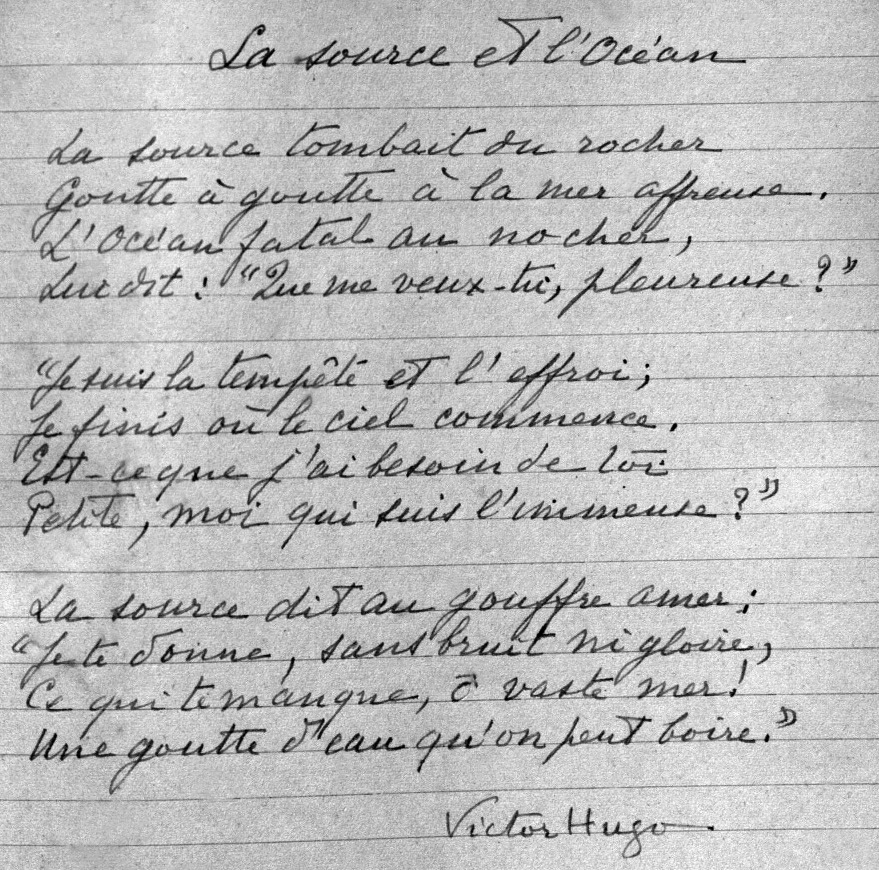 La source et l'Océan
La source tombait du rocher
Goutte à goutte à la mer affreuse.
L'Océan fatal au nocher,
Lui dit : "Que me veux-tu, pleureuse ?"
"Je suis la tempête et l'effroi ;
Je finis où le ciel commence.
Est-ce que j'ai besoin de toi
Petite, moi qui suis l'immense ?"
La source dit au gouffre amer :
"Je te donne, sans bruit ni gloire,
Ce qui te manque, ô vaste mer !
Une goutte d'eau qu'on peut boire."
Victor Hugo